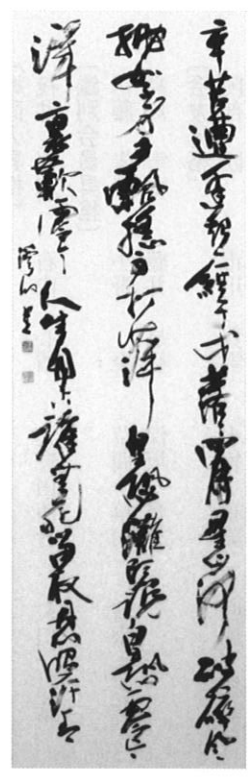 辛苦遭逢起一經干戈落落四周星山河破碎風
拋絮身世飄搖雨打萍皇恐灘頭說皇恐零丁
洋裏歎零丁人生自古誰無死留取丹心照汗青